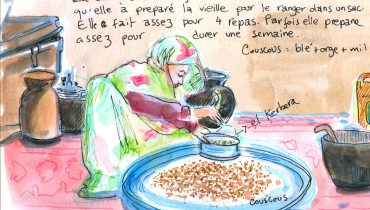 qu'elle à preparé la vieille pour le ranger dans un sac.
Elle fait assez pour 4 repas. Parfois elle prepare
assez pour durer une semaine.
Couscous : blé + orge + mil
el Kerbera
couscous